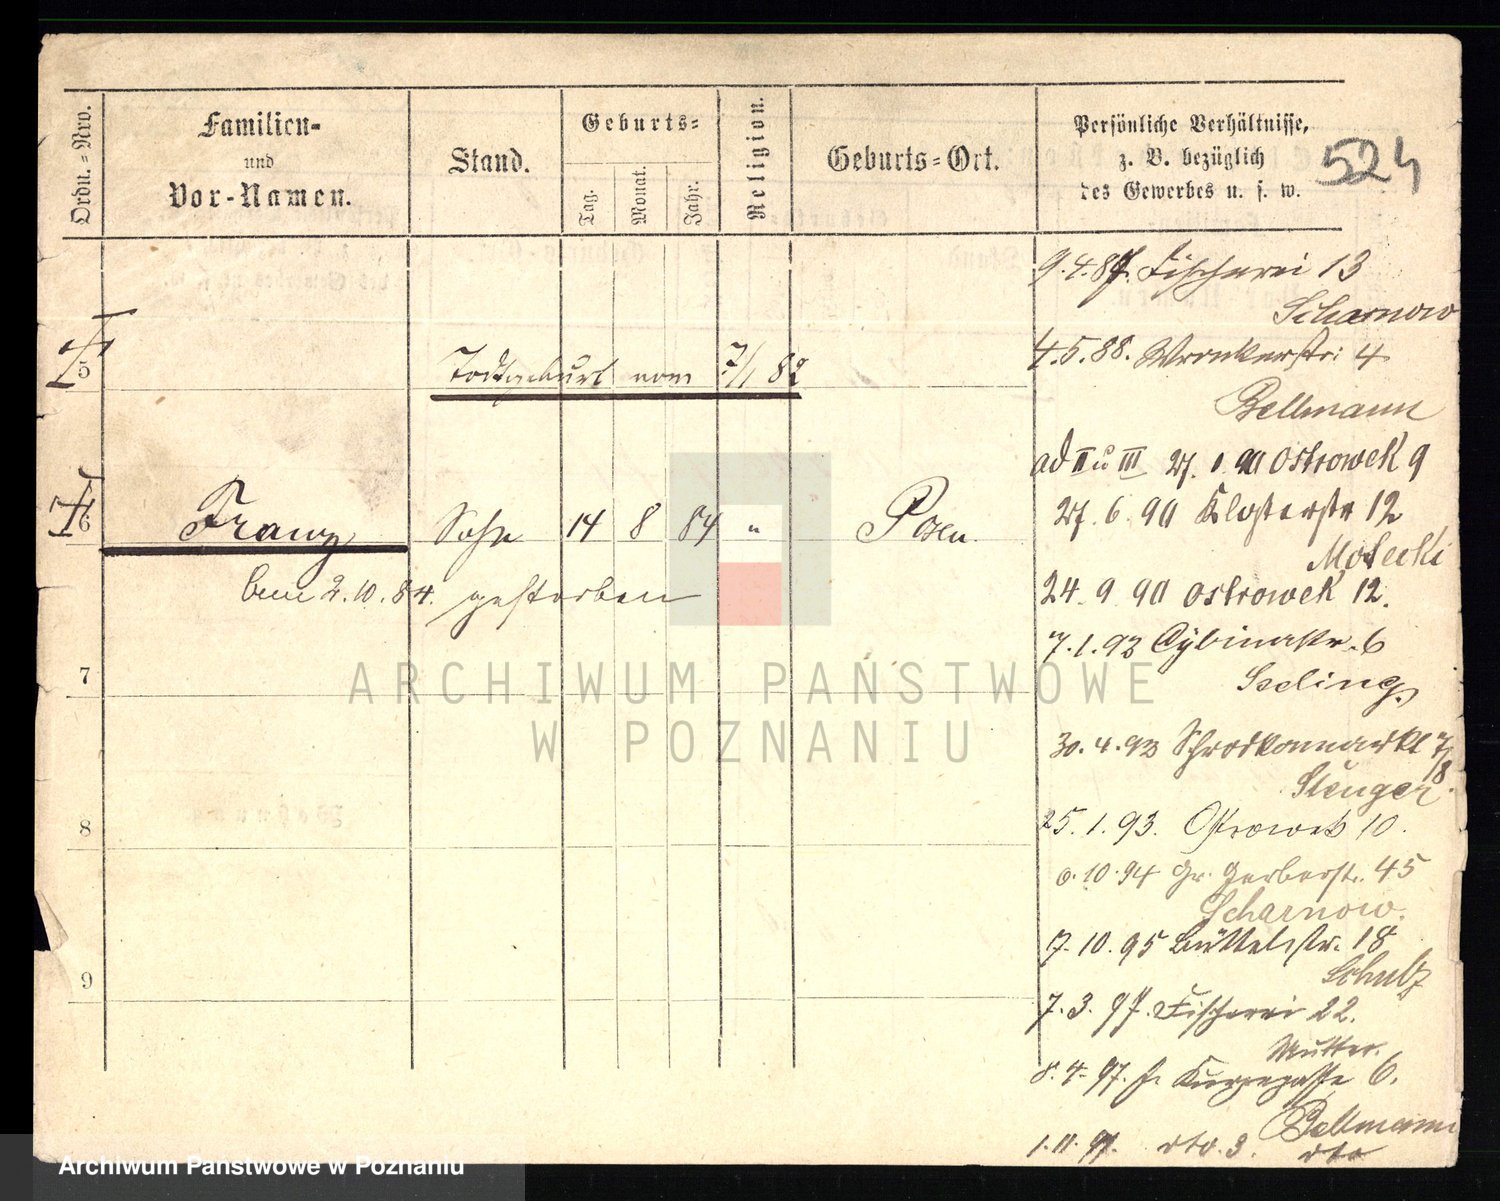 Ordn.=Nro.
Familien=
und
Vor-Namen.
Stand.
Geburts=
Tag.
Monat.
Jahr.
Religion.
Geburts=Ort.
Persönliche Verhältnisse,
z. B. bezüglich
des Gewerbes u. s. w.
524
9.4.87. Fischerei 13
Scharnow
5
Todtgeburt vom 7/1 82
4.5.88. Wronkerstr: 4
Bellmann
ad II u III 27. 90 Ostrowek 9
6
Franz
Sohn
14
8
84
"
Posen.
27.6.90 Klosterstr 12
am 2.10.84. gestorben
24.9 90 Ostrowek 12.
7.1.92 Cybinastr. 6
7
Seeling
30.4.92 Schrodkamarkt 7/8.
Stenger
8
25.1.93. Ostrowek 10.
6.10.94 Gr. Gerberstr. 45
Scharnow.
7.10.95 Büttelstr. 18
Schulz
9
7.3.97. Fischerei 22.
Mutter.
8.4.97. Kurzegasse 6.
Bellmann
1.11.97. dto. 3. dto
ARCHIWUM PAŃSTWOWE
W POZNANIU
Archiwum Państwowe w Poznaniu